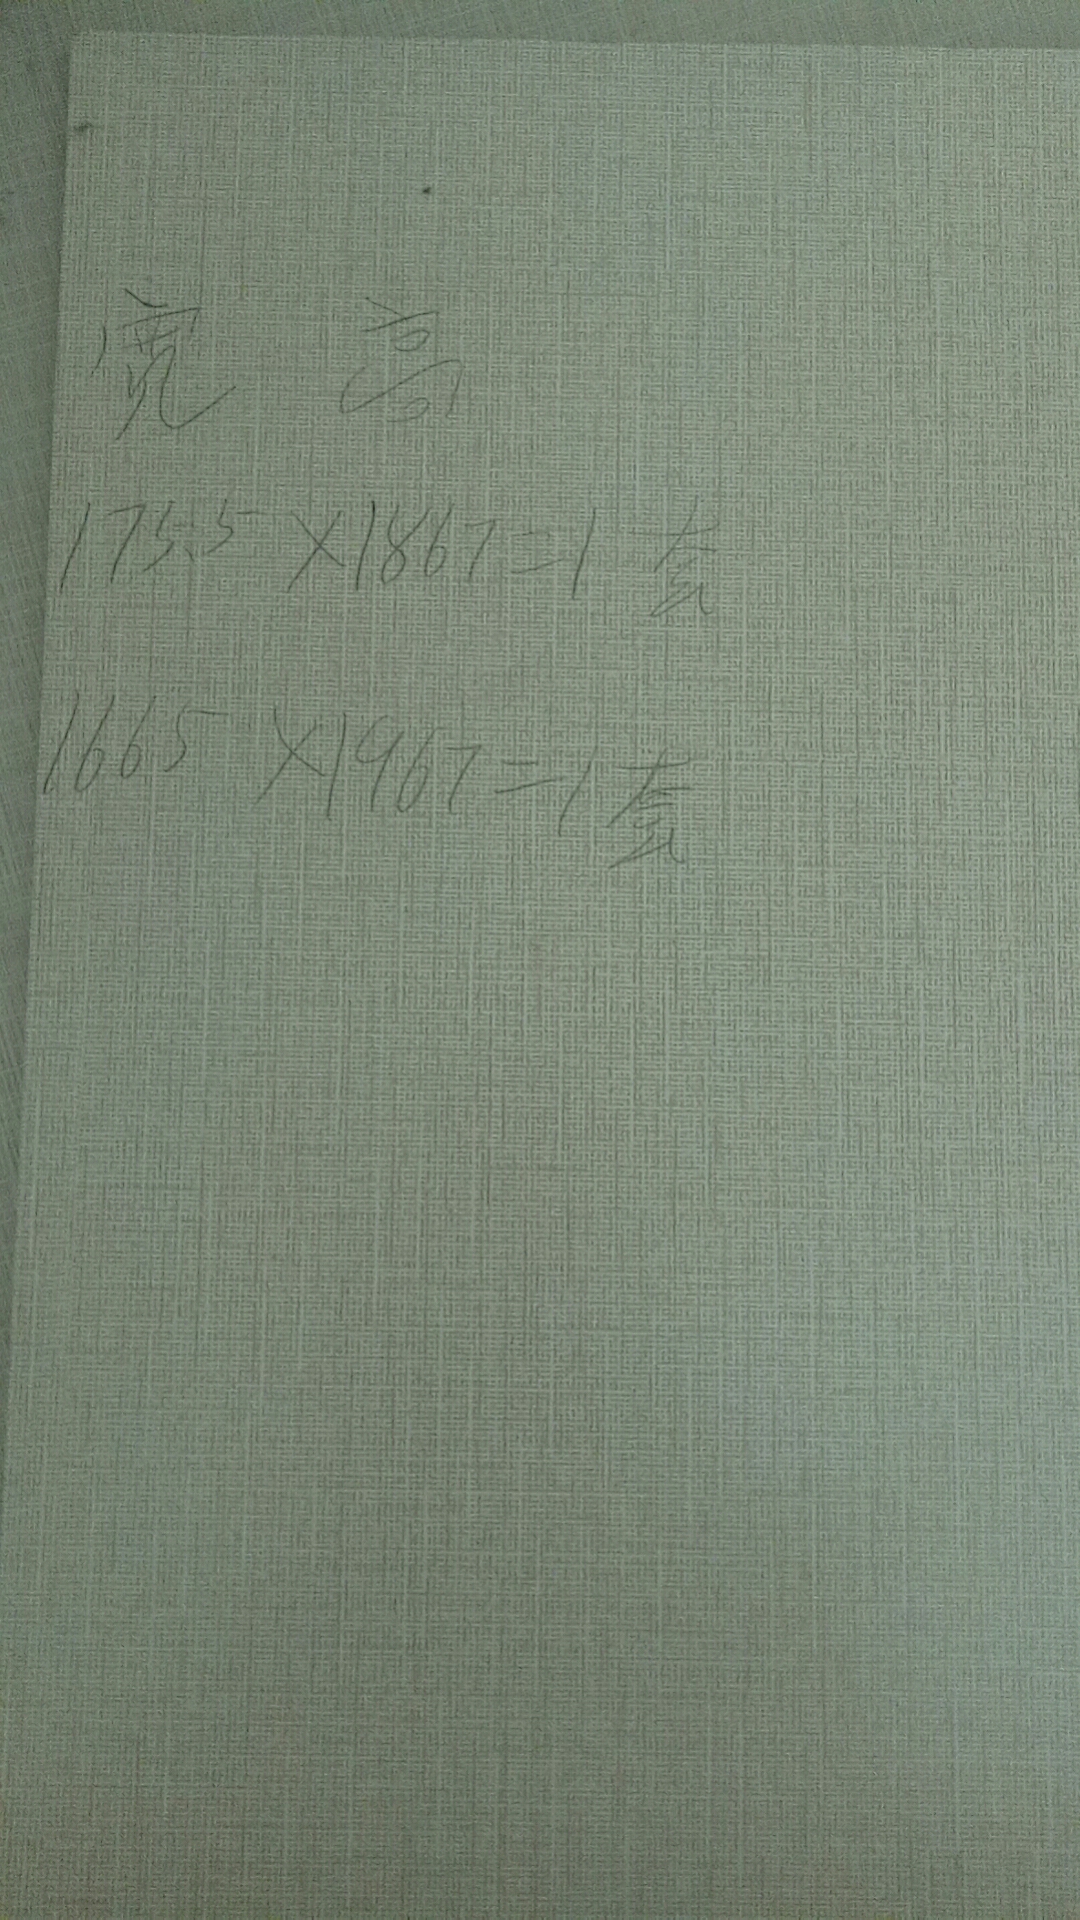 宽 高
1755 ×1867=1 套
1665 ×1967=1套